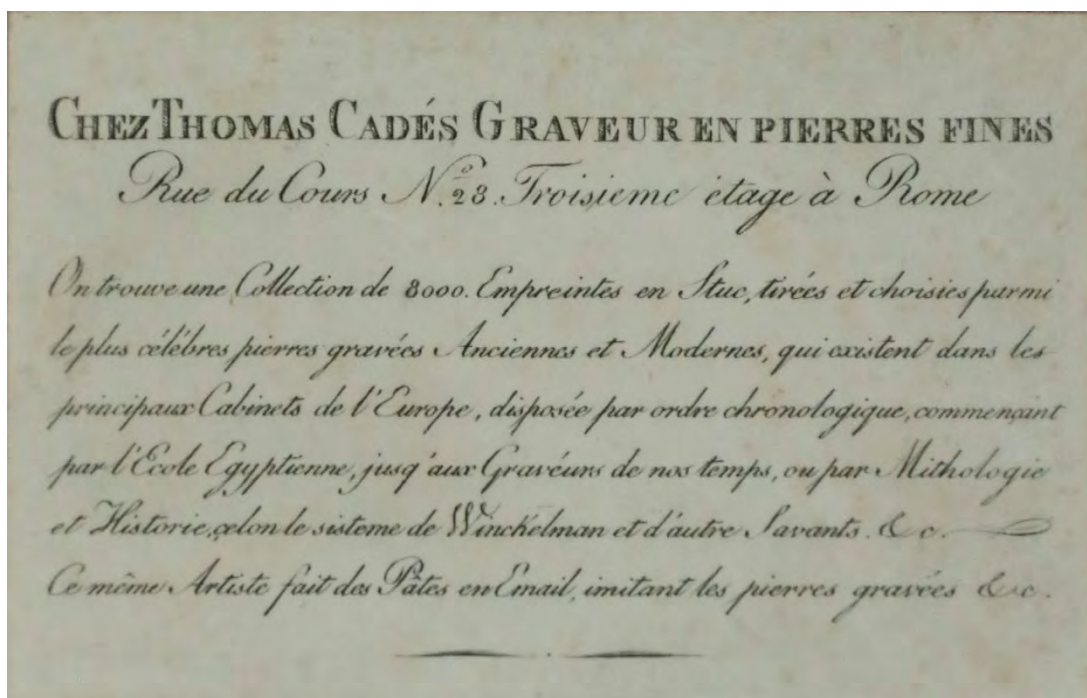 CHEZ THOMAS CADÉS GRAVEUR EN PIERRES FINES
Rue du Cours N.º 28. Troisieme étage à Rome
On trouve une Collection de 8000. Empreintes en Stuc, tirées et choisies parmi
le plus célébres pierres gravées Anciennes et Modernes, qui existent dans les
principaux Cabinets de l'Europe, disposée par ordre chronologique, commençant
par l'Ecole Egyptienne, jusq'aux Gravéurs de nos temps, ou par Mithologie
et Historie, çelon le sisteme de Winckelman et d'autre Savants. &c.
Ce même Artiste fait des Pâtes en Email, imitant les pierres gravées &c.